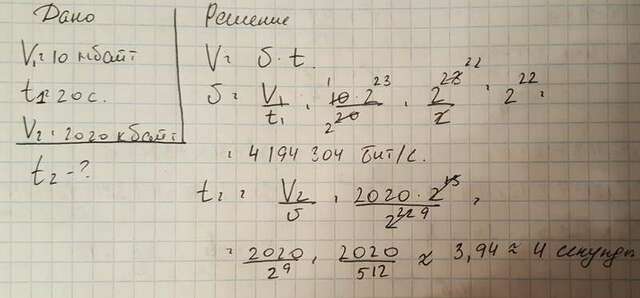 Дано
V₁ = 10 мбайт
t₁ = 20 с.
V₂ = 2020 кбайт
t₂ - ?
Решение
V = S · t.
S = V₁/t₁ = 10 · 2²³/20 = 2²³/2 = 2²² =
= 4 194 304 бит/с.
t₂ = V₂/S = 2020 · 2¹³/2²² =
= 2020/2⁹ = 2020/512 ≈ 3,94 ≈ 4 секунды